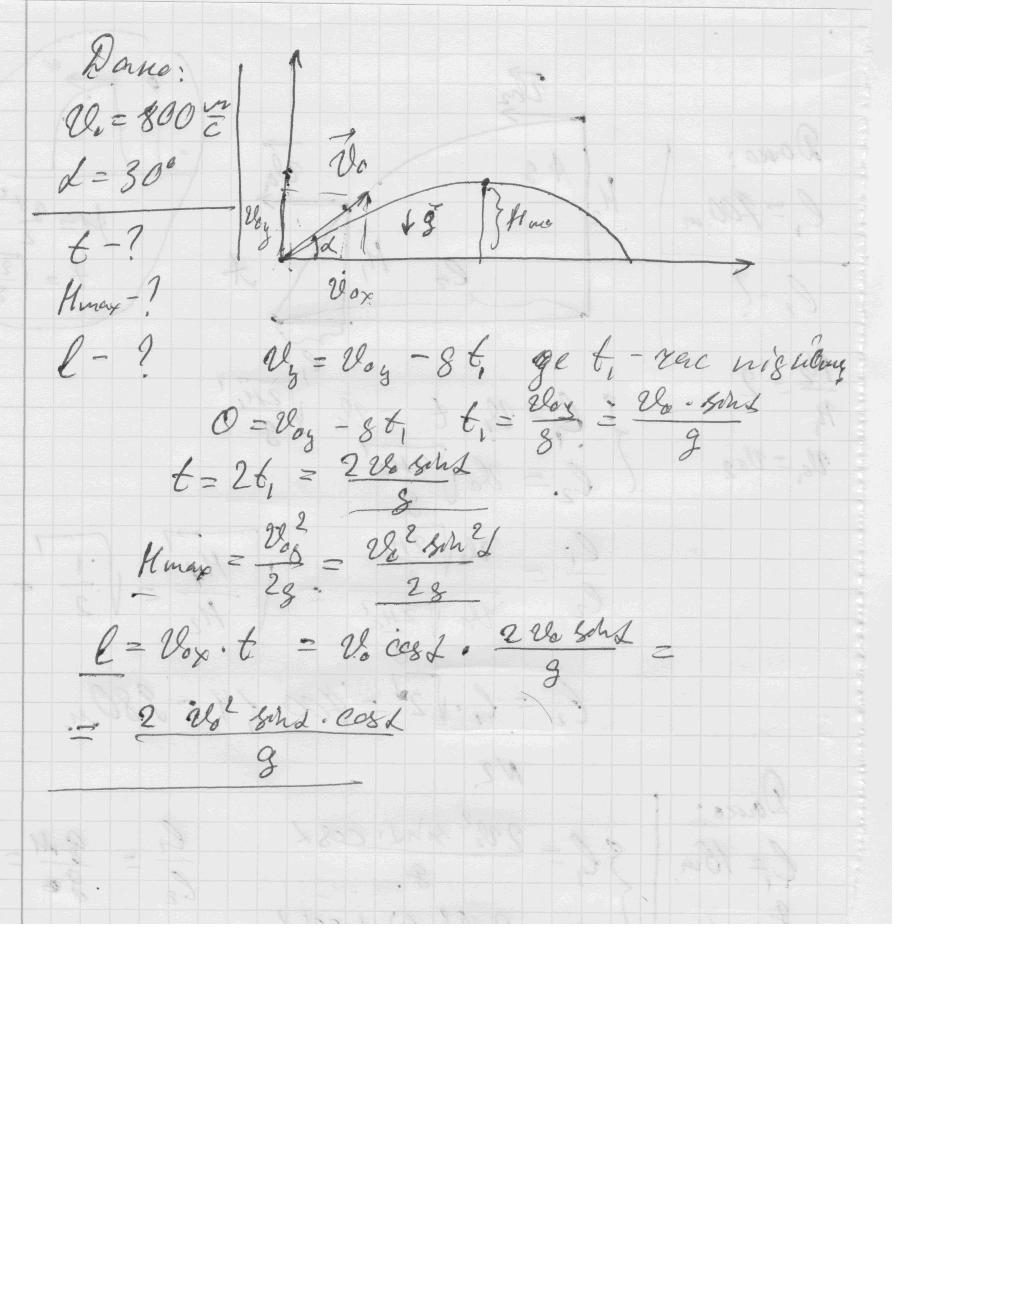 Дано:
v₀ = 800 м/с
α = 30°
t - ?
Hmax - ?
l - ?
v⃗₀
v₀y
α
g⃗
Hmax
v₀x
vy = v₀y - g t₁ де t₁ - час підйому
0 = v₀y - g t₁ t₁ = v₀y/g = v₀ · sinα/g
t = 2t₁ = 2v₀ sinα/g
Hmax = v₀y²/2g = v₀² sin²α/2g
l = v₀x · t = v₀ cosα · 2v₀ sinα/g =
= 2 v₀² sinα · cosα/g